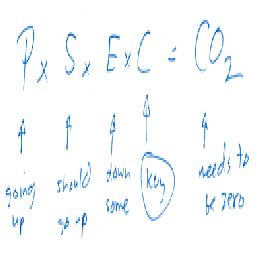 P x S x E x C = CO2
going up
should go up
down some
key
needs to be zero